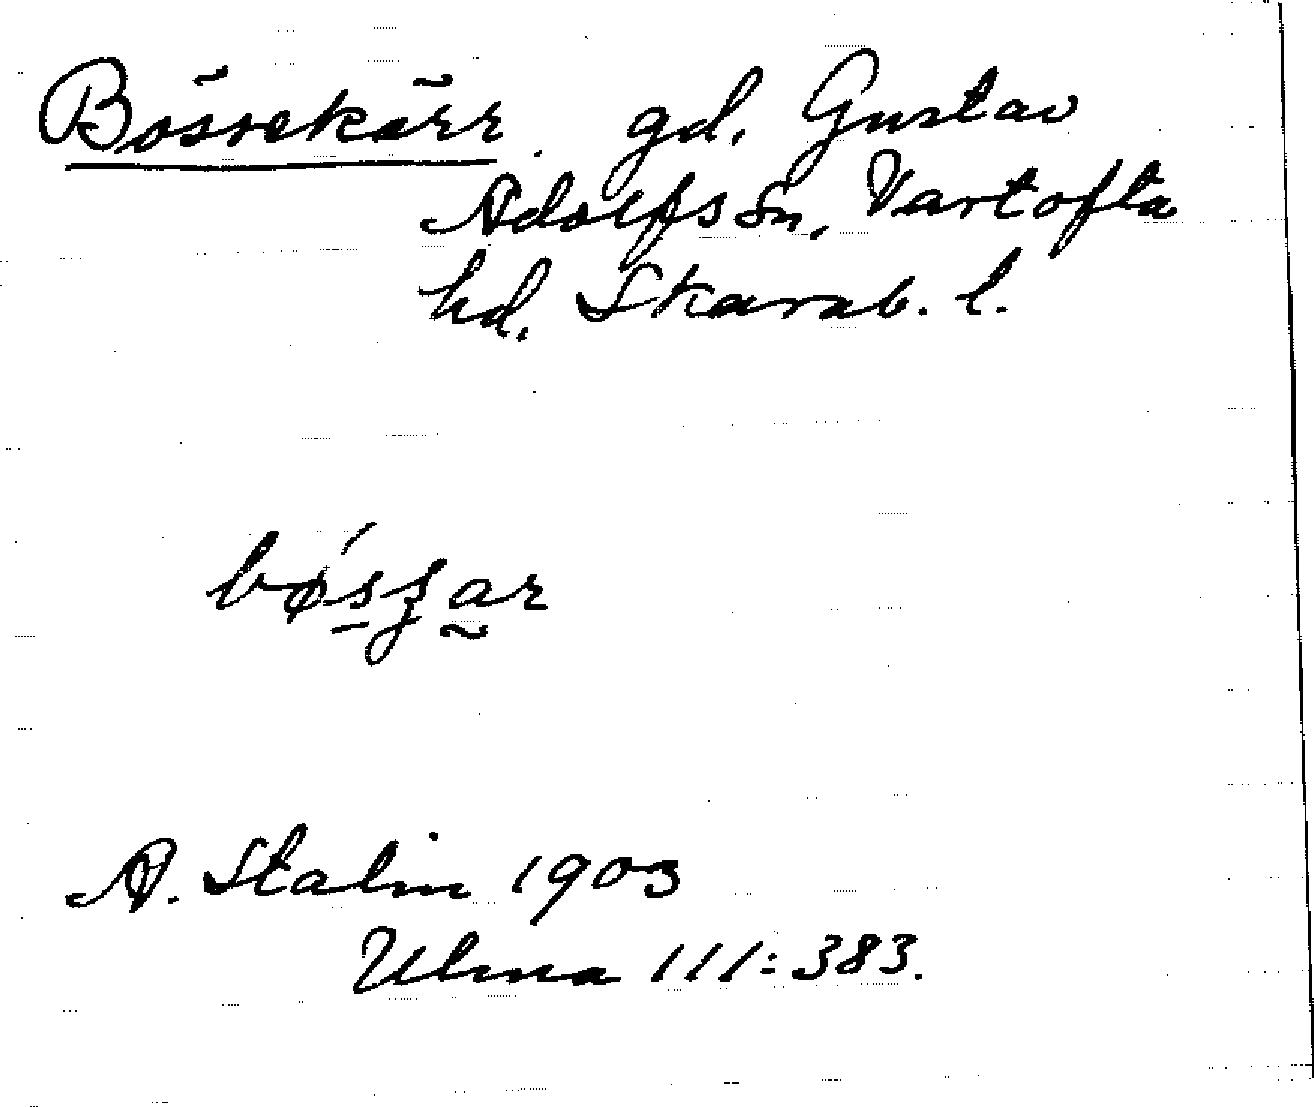 Bösrekärr. gd. Gustav
Adolfs sn, Vartofta
hd. Skarab. l.
A. Stalin 1903
Ulma 111:383.